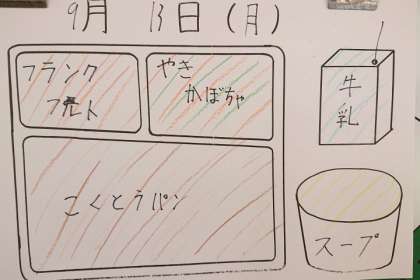 9月 13日（月）
フランク
フルト
やき
かぼちゃ
牛
乳
こくとうパン
スープ